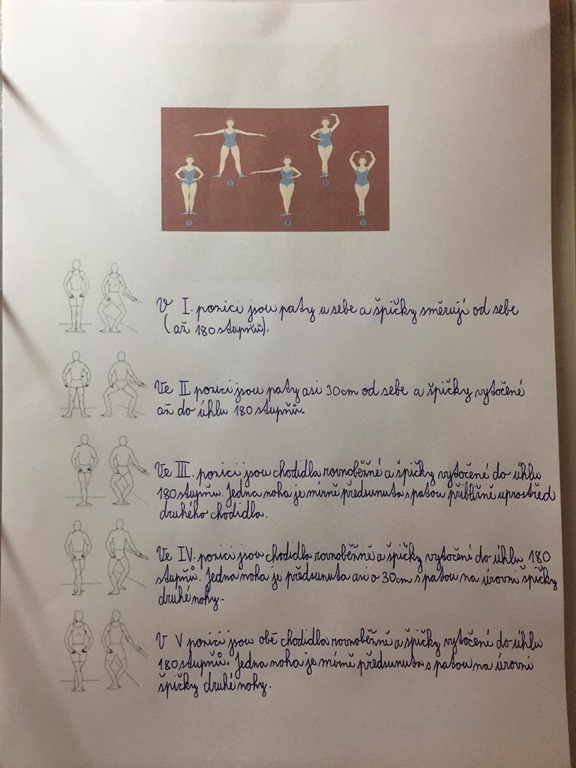 V I. pozici jsou paty u sebe a špičky směrují od sebe
(až 180 stupňů).
Ve II. pozici jsou paty asi 30cm od sebe a špičky vytočené
až do úhlu 180 stupňů.
Ve III. pozici jsou chodidla rovnoběžné a špičky vytočené do úhlu
180 stupňů. Jedna noha je mírně předsunuta s patou přibližně uprostřed
druhého chodidla.
Ve IV. pozici jsou chodidla rovnoběžné a špičky vytočené do úhlu 180
stupňů. Jedna noha je předsunuta asi o 30cm s patou na úrovni špičky
druhé nohy.
V V pozici jsou obě chodidla rovnoběžné a špičky vytočené do úhlu
180 stupňů. Jedna noha je mírně předsunuta s patou na úrovni
špičky druhé nohy.